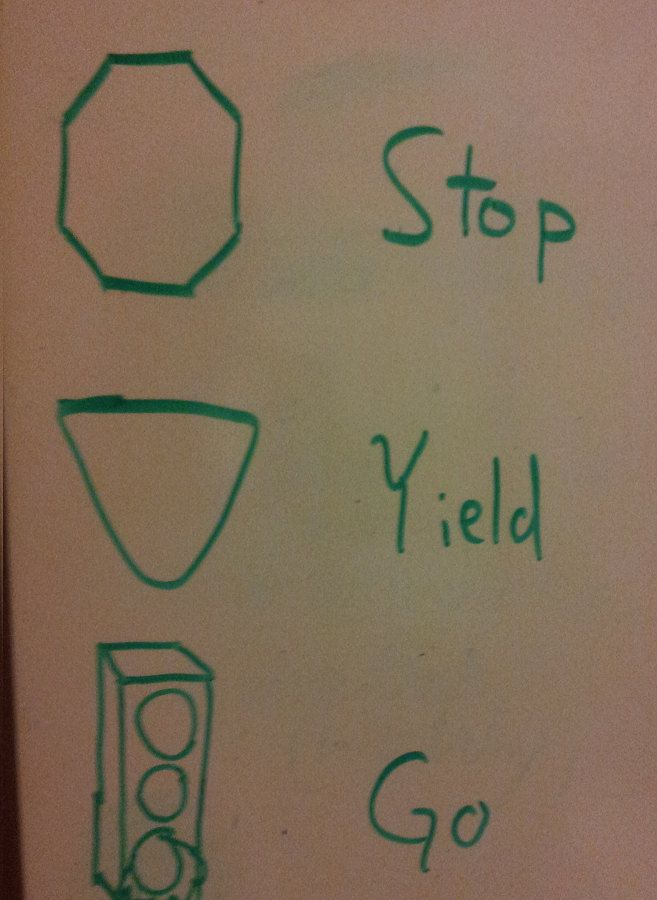 Stop
Yield
Go